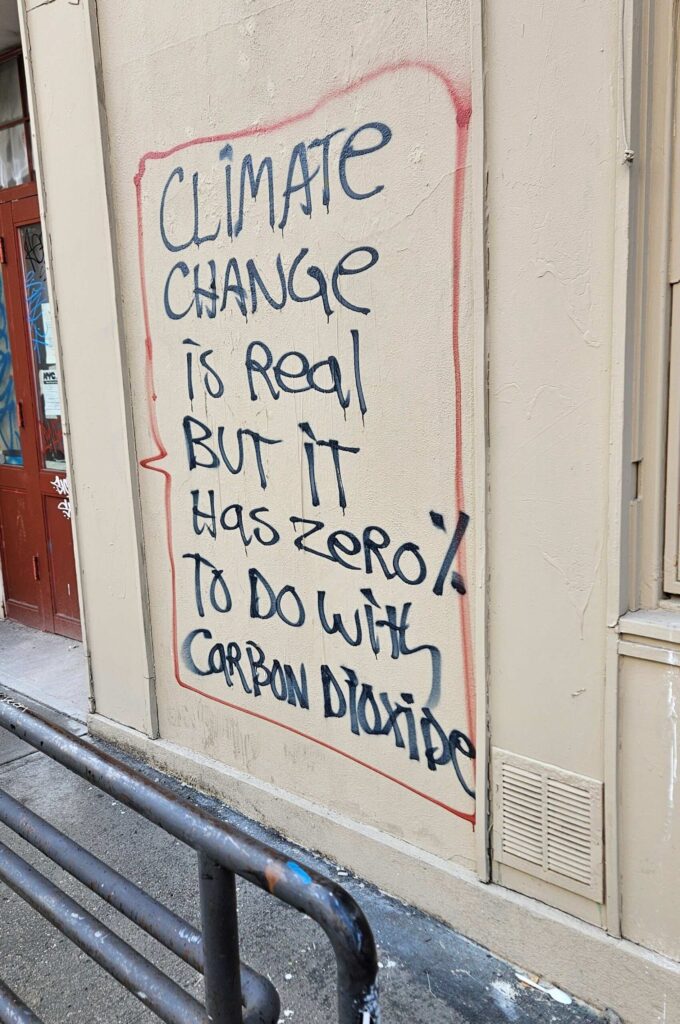 CLiMATe
CHANGe
is Real
BUT iT
Has zeRo%
To Do wiTH
CaRBON DioxiDe
NYC